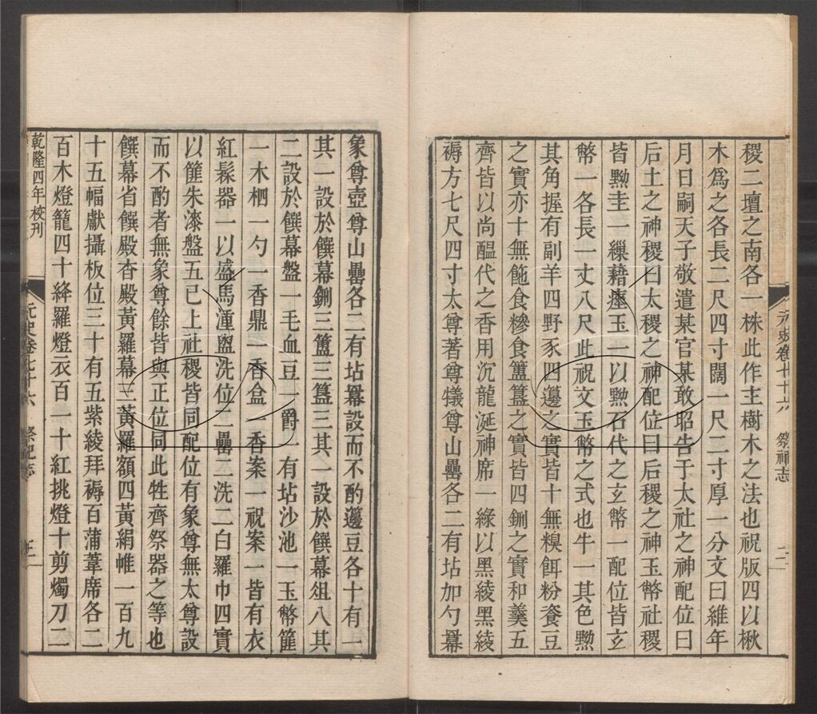 稷二壇之南各一株此作主樹木之法也祝版四以楸
木爲之各長二尺四寸闊一尺二寸厚一分文曰維年
月日嗣天子敬遣某官某敢昭告于太社之神配位曰
后土之神稷曰太稷之神配位曰后稷之神玉幣社稷
皆黝圭一繅藉瘞玉一以黝石代之玄幣一配位皆玄
幣一各長一丈八尺此祝文玉幣之式也牛一其色黝
其角握有副羊四野豕四籩之實皆十無糗餌粉餈豆
之實亦十無飽食糝食簠簋之實皆四鉶之實和羹五
齊皆以尚醖代之香用沉龍涎神席一緣以黑綾黑綾
褥方七尺四寸太尊著尊犧尊山罍各二有坫加勺羃
元史卷七十六 祭祀志 二
象尊壺尊山罍各二有坫羃設而不酌籩豆各十有一
其一設於饌幕鉶三簠三簋三其一設於饌幕俎八其
二設於饌幕盤一毛血豆一爵一有坫沙池一玉幣篚
一木柶一勺一香鼎一香盒一香案一祝案一皆有衣
紅髹器一以盛馬湩盥洗位二罍二洗二白羅巾四實
以篚朱漆盤五已上社稷皆同配位有象尊無太尊設
而不酌者無象尊餘皆與正位同此牲齊祭器之等也
饌幕省饌殿杳殿黃羅幕三黃羅額四黃絹帷一百九
十五幅獻攝板位三十有五紫綾拜褥百蒲葦席各二
百木燈籠四十絳羅燈衣百一十紅挑燈十剪燭刀二
乾隆四年校刊
元史卷七十六 祭祀志